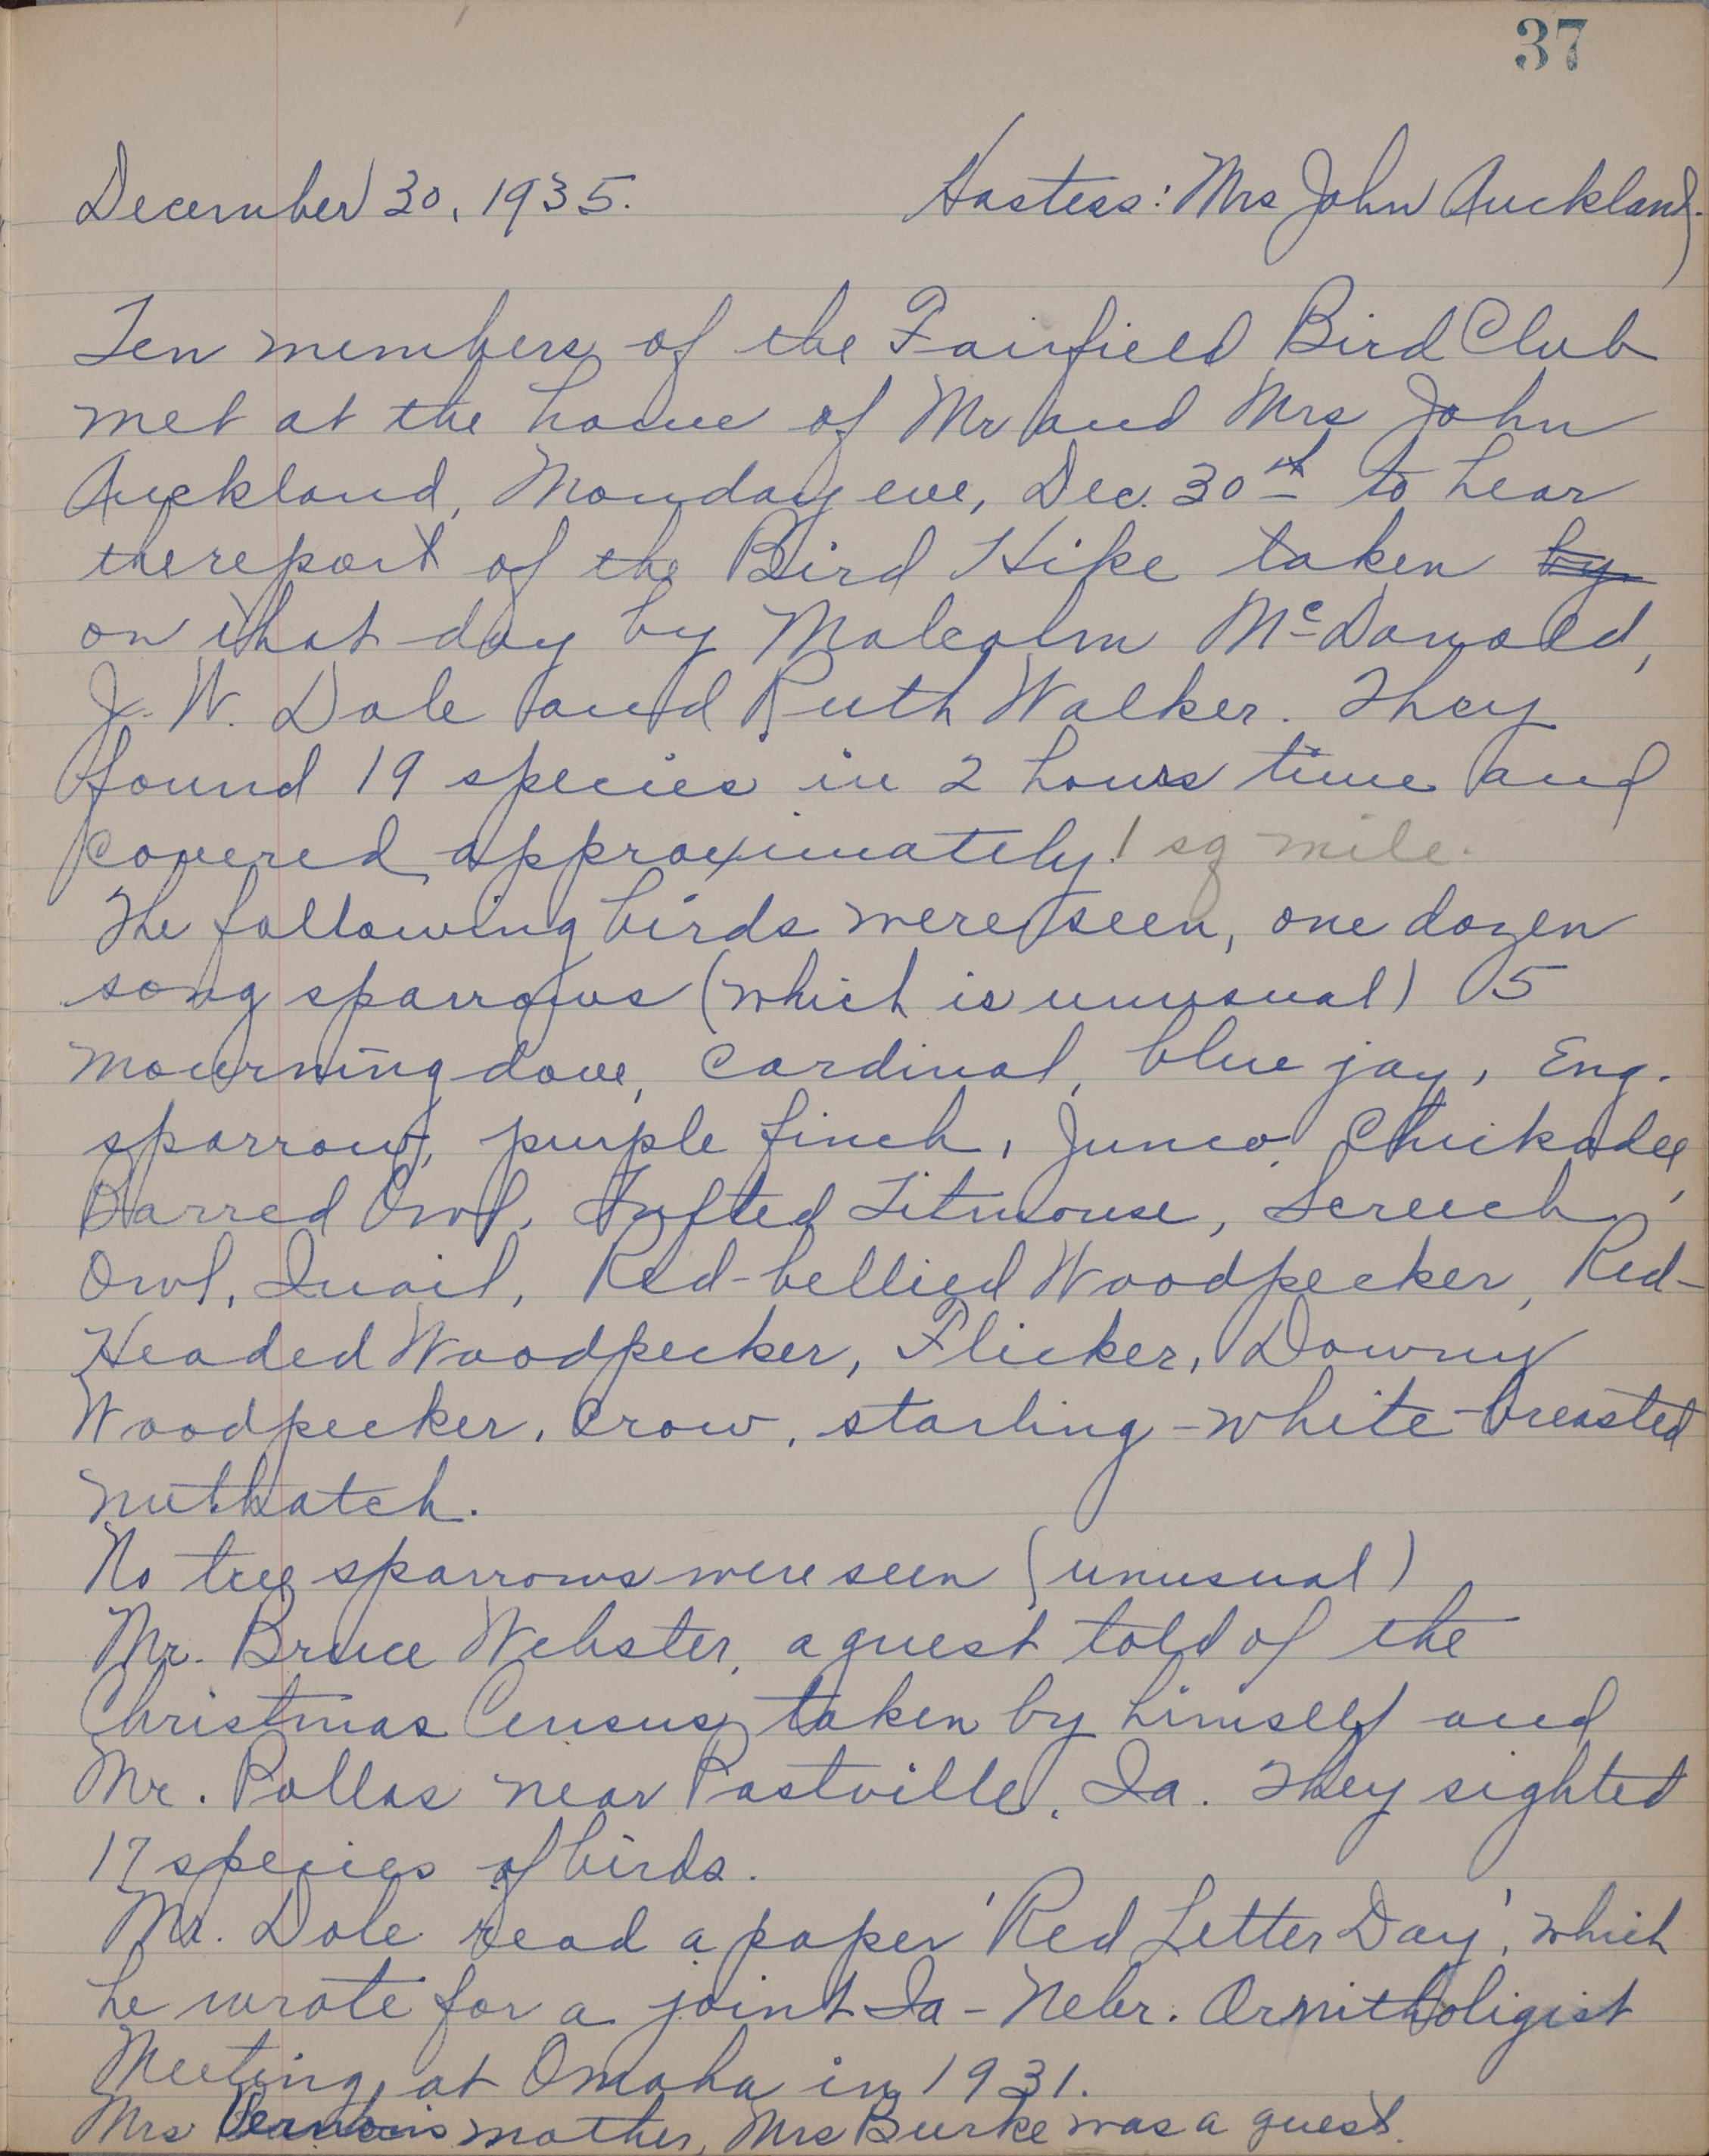 37
December 30, 1935.
Hostess: Mrs John Auckland.
Ten members of the Fairfield Bird Club
met at the home of Mr and Mrs John
Auckland, Monday eve, Dec. 30th to hear
the report of the Bird Hike taken by
on that day by Malcolm McDonald,
J. W. Dole and Ruth Walker. They
found 19 species in 2 hours time and
covered approximately 1 sq mile.
The following birds were seen, one dozen
song sparrows (which is unusual) 5
mourning dove, cardinal, blue jay, Eng.
sparrow, purple finch, Junco, Chickadee,
Barred Owl, Tufted Titmouse, Screech
Owl, Quail, Red-bellied Woodpecker, Red-
Headed Woodpecker, Flicker, Downy
Woodpecker, Crow, starling - white-breasted
nuthatch.
No tree sparrows were seen (unusual)
Mr. Bruce Webster, a guest told of the
Christmas Census taken by himself and
Mr. Pallas near Postville, Ia. They sighted
17 species of birds.
Mr. Dole read a paper 'Red Letter Day', which
he wrote for a joint Ia - Nebr. Ornithologist
Meeting, at Omaha in 1931.
Mrs mother, Mrs Burke was a guest.